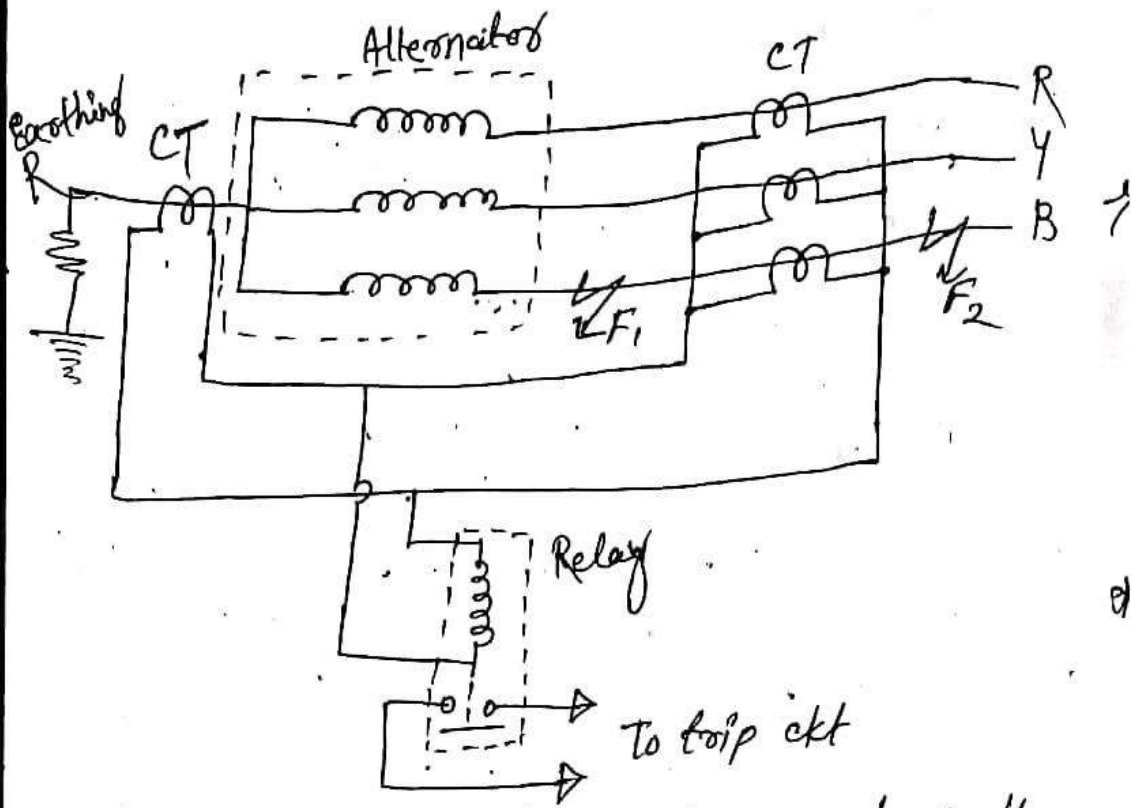 Alternator
CT
R
Earthing
R
CT
Y
B
F1
F2
Relay
To trip ckt